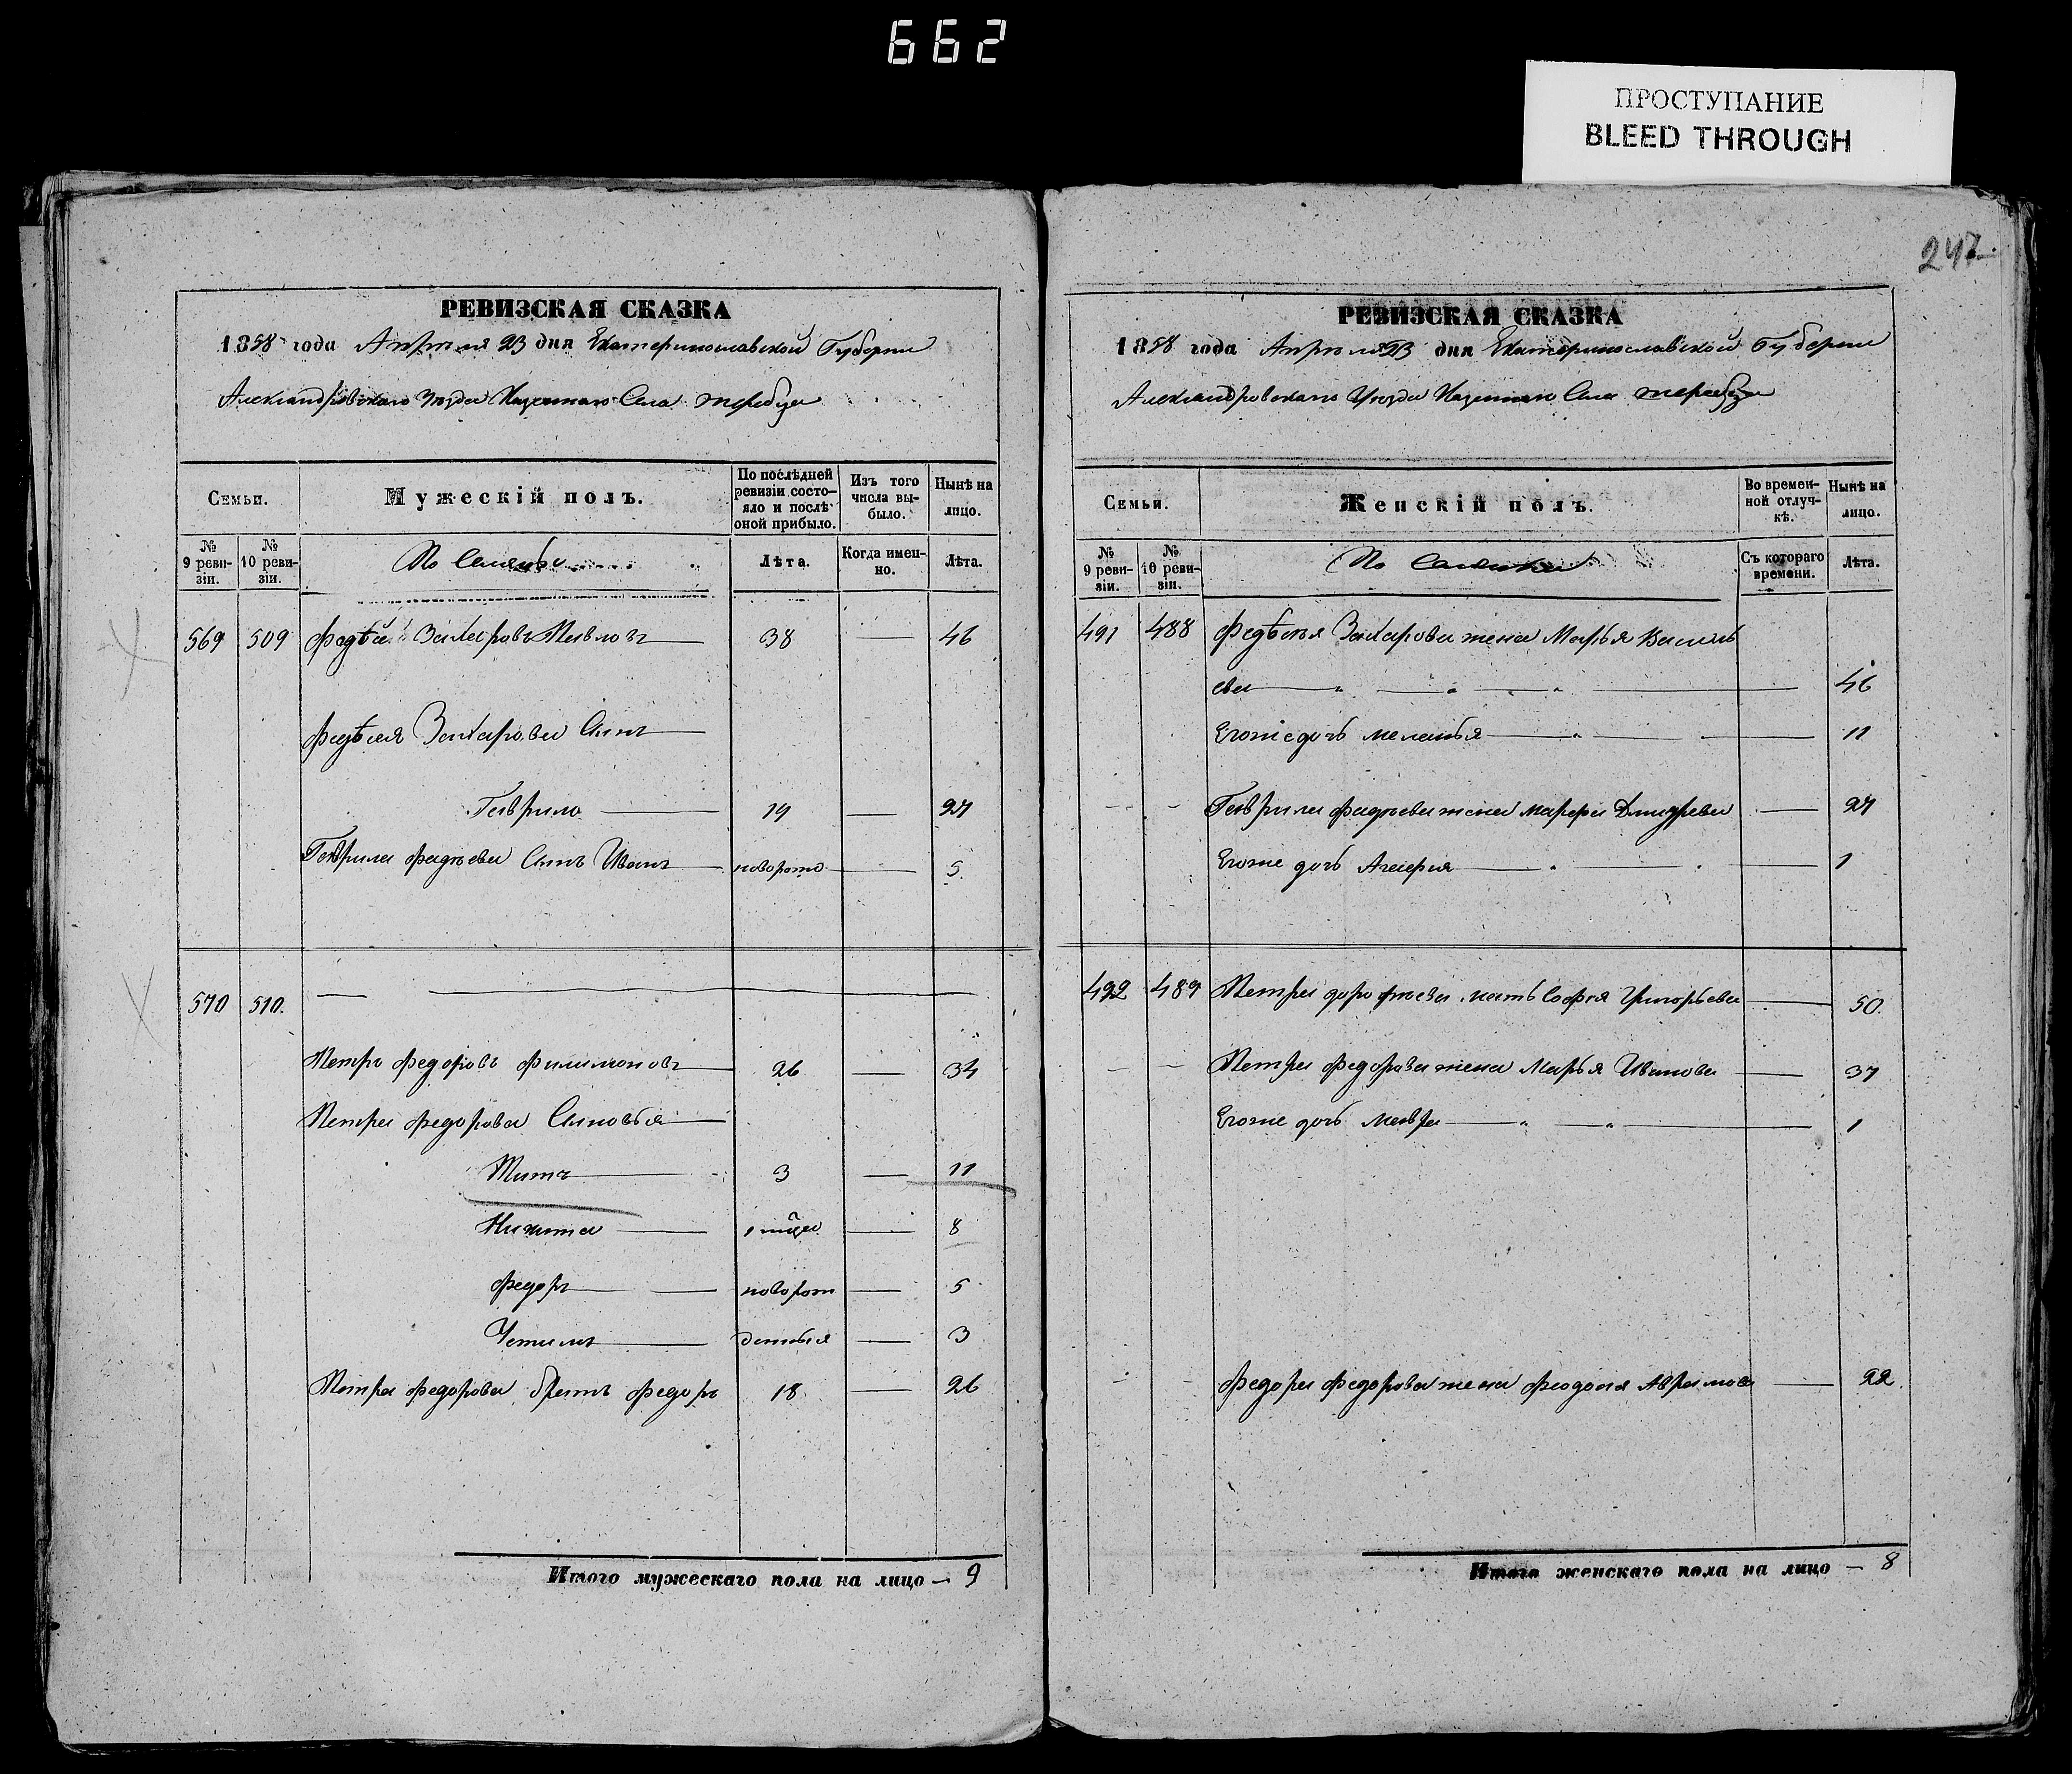 662
ПРОСТУПАНИЕ
BLEED THROUGH
247
РЕВИЗСКАЯ СКАЗКА
1858 года Апреля 23 дня Екатеринославской Губернии
Александровскаго Уезда Казеннаго Села
Семьи.
Мужескій полъ.
По послѣдней ревизіи состо-яло и послѣ оной прибыло.
Изъ того числа вы-было.
Нынѣ на лицо.
№ 9 реви-зіи.
№ 10 реви-зіи.
Лѣта.
Когда имен-но.
Лѣта.
569 509 Фадѣй Захаровъ Павловъ 38 — 46
Фадѣея Захарова Сынъ
Гаврило 19 — 27
Гаврила Фадѣева Сынъ Иванъ новорожд — 5
570 510.
Петръ Федоровъ Филимоновъ 26 — 34
Петра Федорова Сыновья
Титъ 3 — 11
Никита — 8
Федоръ новорож — 5
денныя — 3
Петра Федорова братъ Федоръ 18 — 26
Итого мужескаго пола на лицо — 9
РЕВИЗСКАЯ СКАЗКА
1858 года Апреля 23 дня Екатеринославской Губернии
Александровскаго Уезда Казеннаго Села
Семьи.
Женскій полъ.
Во времен-ной отлуч-кѣ.
Нынѣ на лицо.
№ 9 реви-зіи.
№ 10 реви-зіи.
Съ котораго времени.
Лѣта.
491 488 Фадѣея Захарова жена Марья Василь
ева — 46
Егоже дочь Меланья — 11
Гаврила Фадѣева жена Марфа Дмитрева — 27
Егоже дочь Агафия — 1
492 489 Петра мать Софья Григорьева — 50.
Петра Федорова жена Марья Иванова — 37
Егоже дочь Мавра — 1
Федора Федорова жена Феодосия — 22.
Итого женскаго пола на лицо — 8